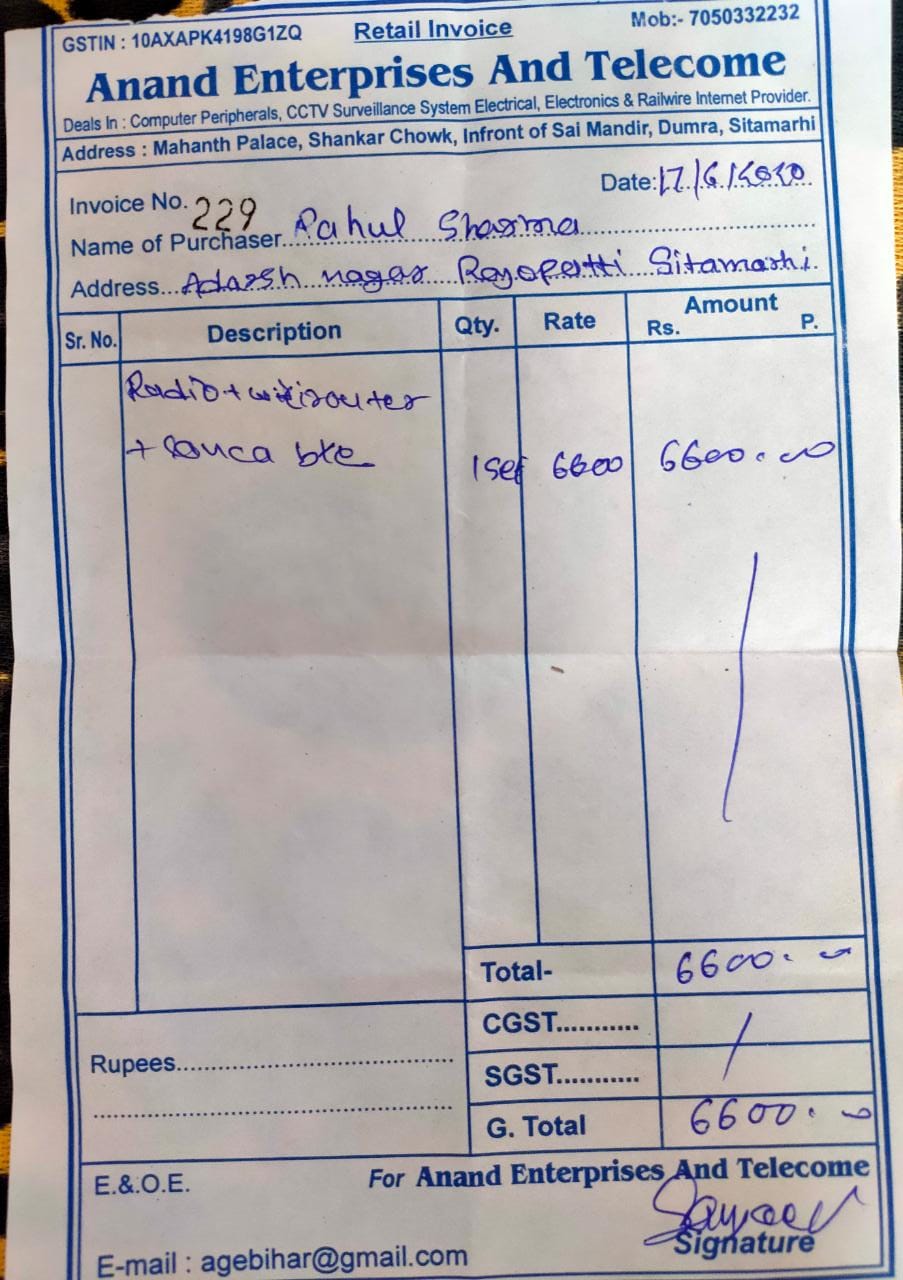 GSTIN : 10AXAPK4198G1ZQ Retail Invoice Mob:- 7050332232
Anand Enterprises And Telecome
Deals In : Computer Peripherals, CCTV Surveillance System Electrical, Electronics & Railwire Internet Provider.
Address : Mahanth Palace, Shankar Chowk, Infront of Sai Mandir, Dumra, Sitamarhi
Invoice No. 229 Date: 17/6/2020
Name of Purchaser Rahul Sharma
Address Adarsh nagar Sitamarhi
Sr. No. Description Qty. Rate Amount
Rs. P.
Radio + wifi router
+ 1 Set 6600 6600.00
Total- 6600.00
CGST
Rupees
SGST
G. Total 6600.00
E.&.O.E. For Anand Enterprises And Telecome
Signature
E-mail : agebihar@gmail.com